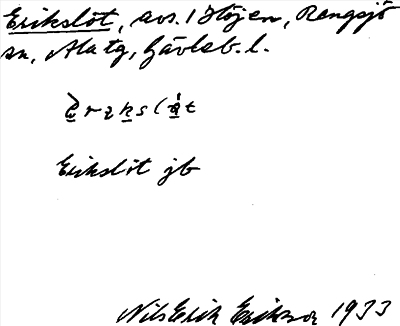 Erikslöt, avs. 1 Höjen, Rengsjö
sn, Ala tg, Gävleb. l.
Erikslöt jb
Nils Erik Erikson 1933